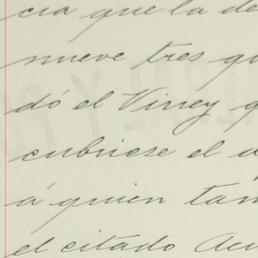 cia que la de
nueve tres qu
dó el Virrey q
cubriese el a
á quien tam
el citado Acu